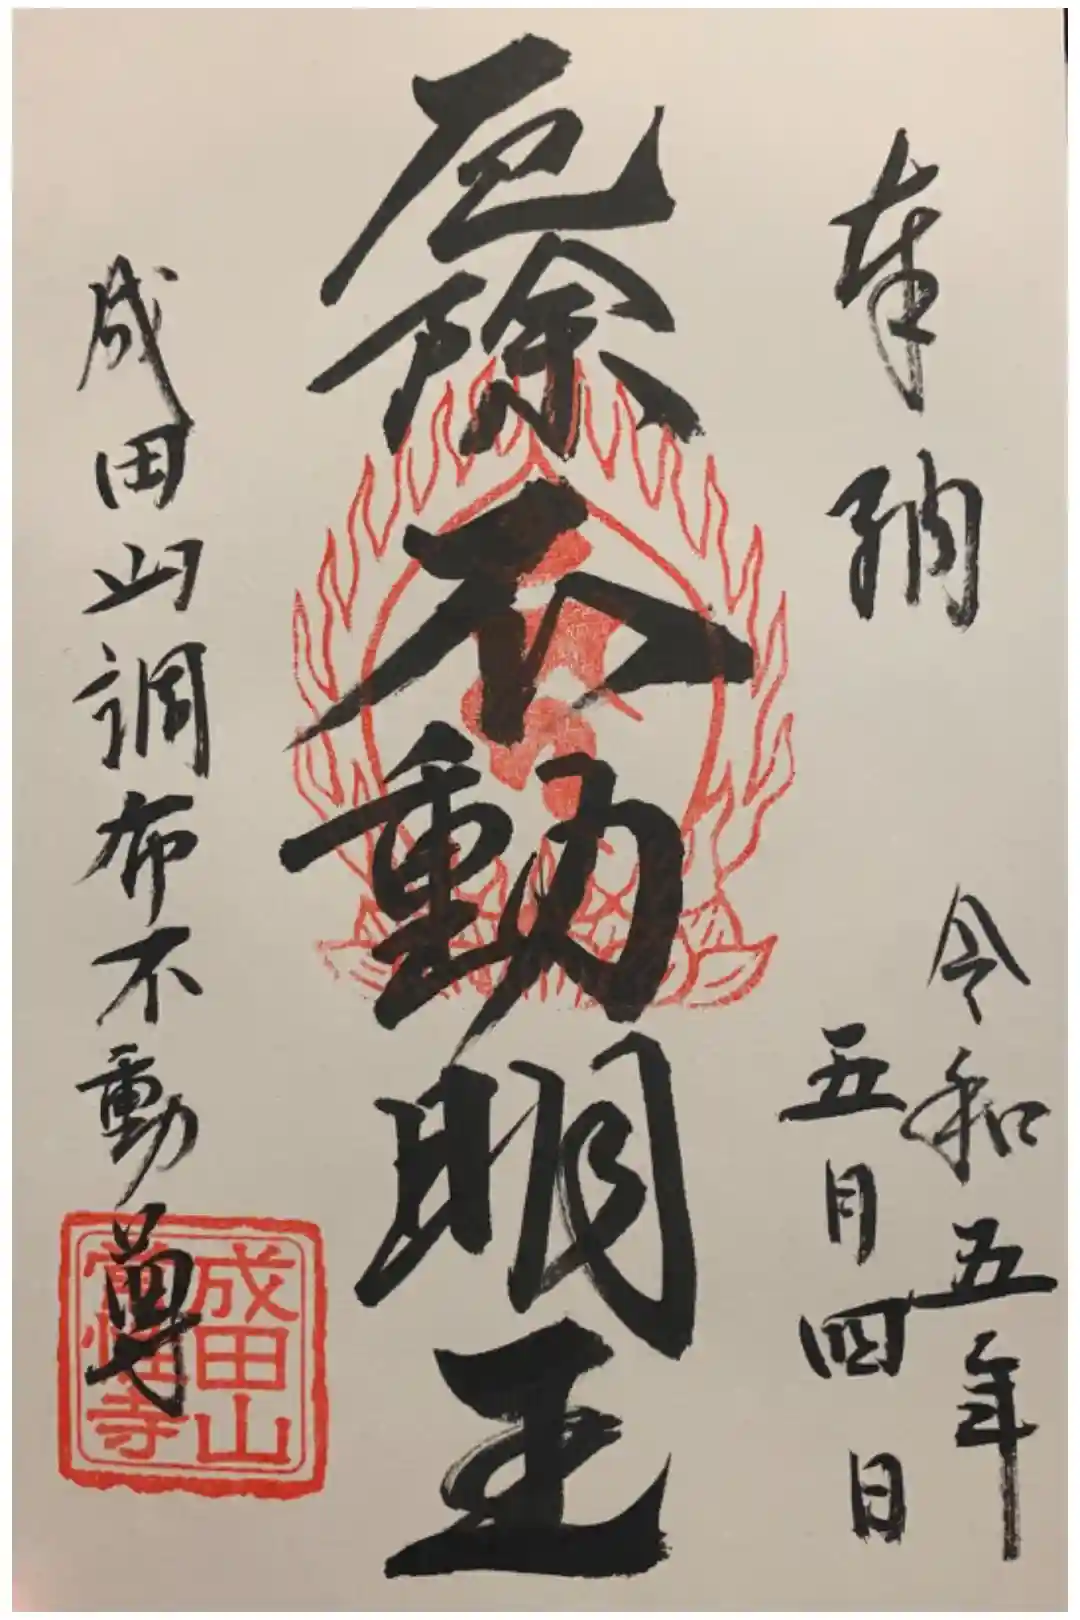 奉納
令和五年
五月四日
厄除不動明王
成田山調布不動尊
成田山
常性寺